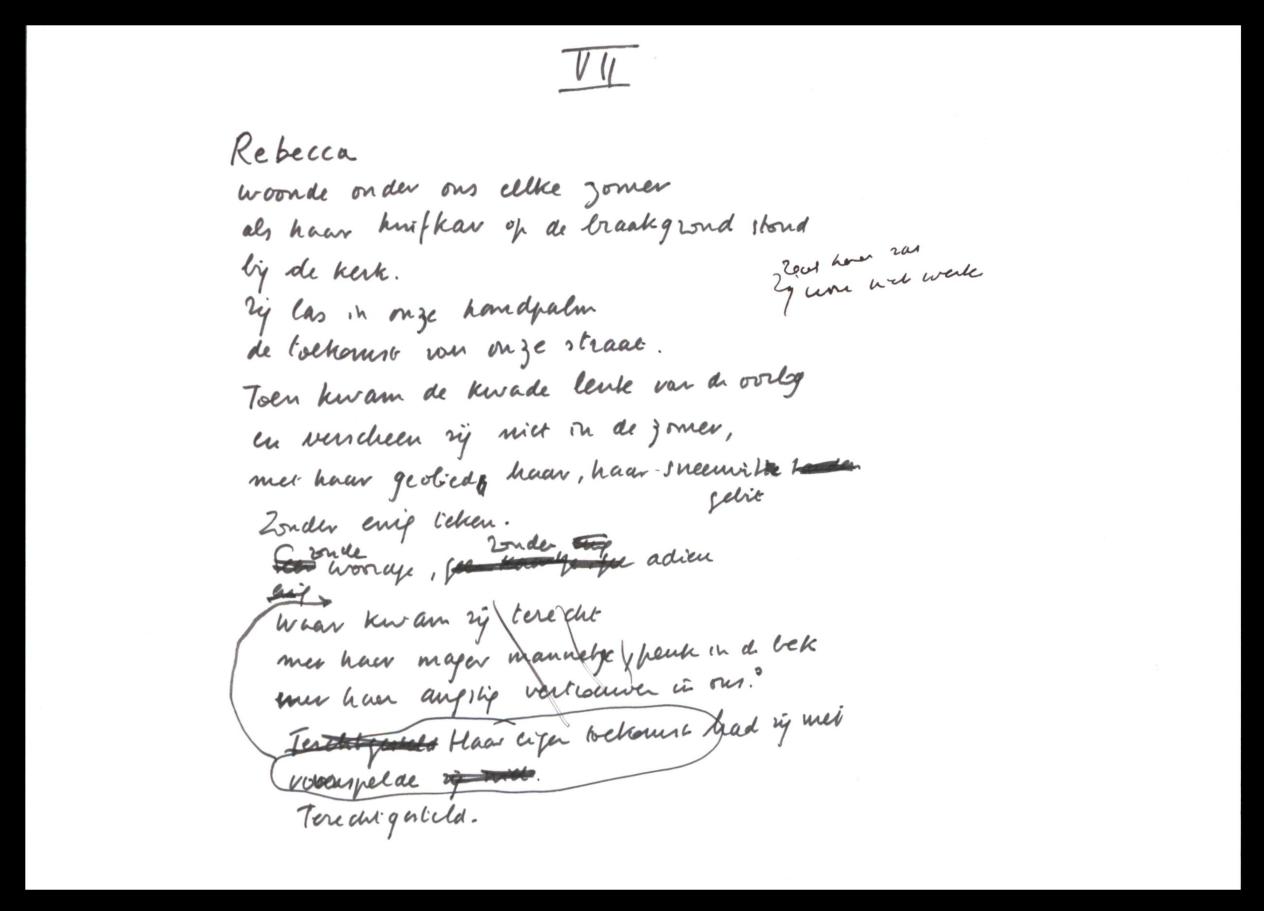 VII
Rebecca
woonde onder ons elke zomer
als haar huifkar op de braakgrond stond
bij de kerk.
zij las in onze handpalm
de toekomst van onze straat.
Toen kwam de kwade lente van de oorlog
en verscheen zij niet in de zomer,
met haar geolied haar, haar sneeuwwit
gebit
Zonder enig teken.
zonder
zonde woordje, adieu
waar kwam zij terecht
met haar mager mannetje peuk in de bek
met haar angstig vertrouwen in ons?
Haar eigen toekomst had zij niet
voorspelde
Terechtgesteld.